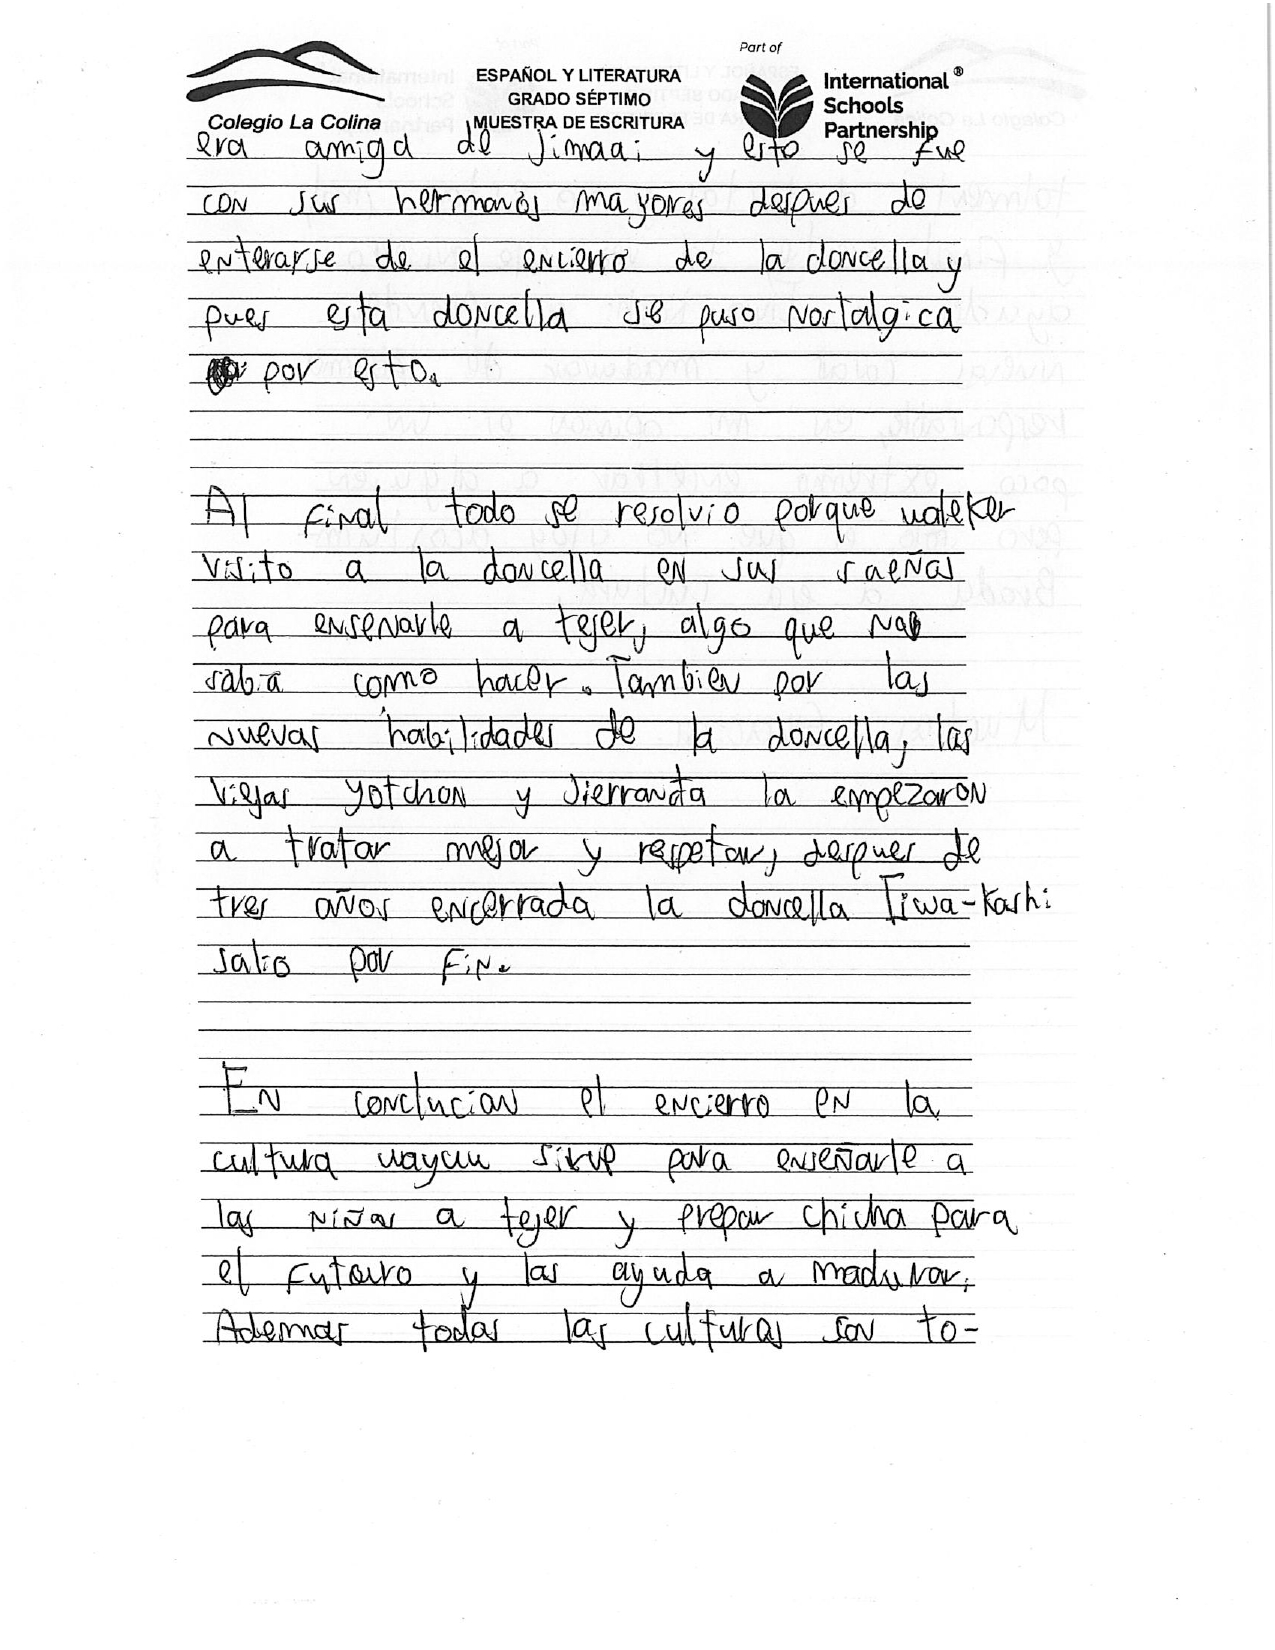 Part of
ESPAÑOL Y LITERATURA
GRADO SÉPTIMO
MUESTRA DE ESCRITURA
Colegio La Colina
International®
Schools
Partnership
era amiga de Jimaai y esto se fue
con sus hermanos mayores despues de
enterarse de el encierro de la doncella y
pues esta doncella se puso nostalgica
por esto.
Al final todo se resolvio porque waleker
visito a la doncella en sus sueños
para enseñarle a tejer, algo que no
sabia como hacer. Tambien por las
nuevas habilidades de la doncella, las
viejas yotchon y Jierranta la empezaron
a tratar mejor y respetar, despues de
tres años encerrada la doncella Iiwa-Kashi
salio por fin.
En conclucian el encierro en la
cultura wayuu sirve para enseñarle a
las niñas a tejer y prepar chicha para
el futuro y las ayuda a madurar,
Ademas todas las culturas son to-